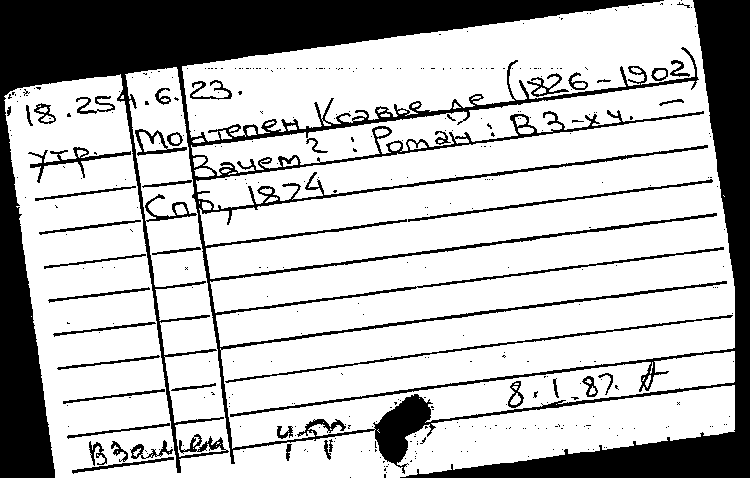 18.254.6.23.
Монтепен, Ксавье де (1826-1902)
утр. Зачем? : Роман : В 3-х ч. —
Спб., 1874.
8.I.87.
Взамен